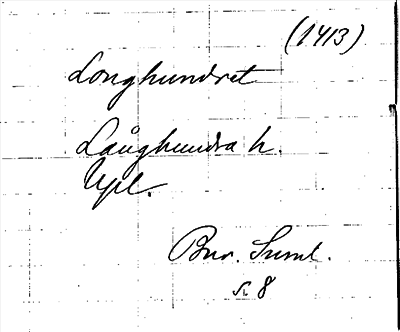 (1413)
Longhundret
Långhundra h.
Upl.
Bur. Suml.
s. 8